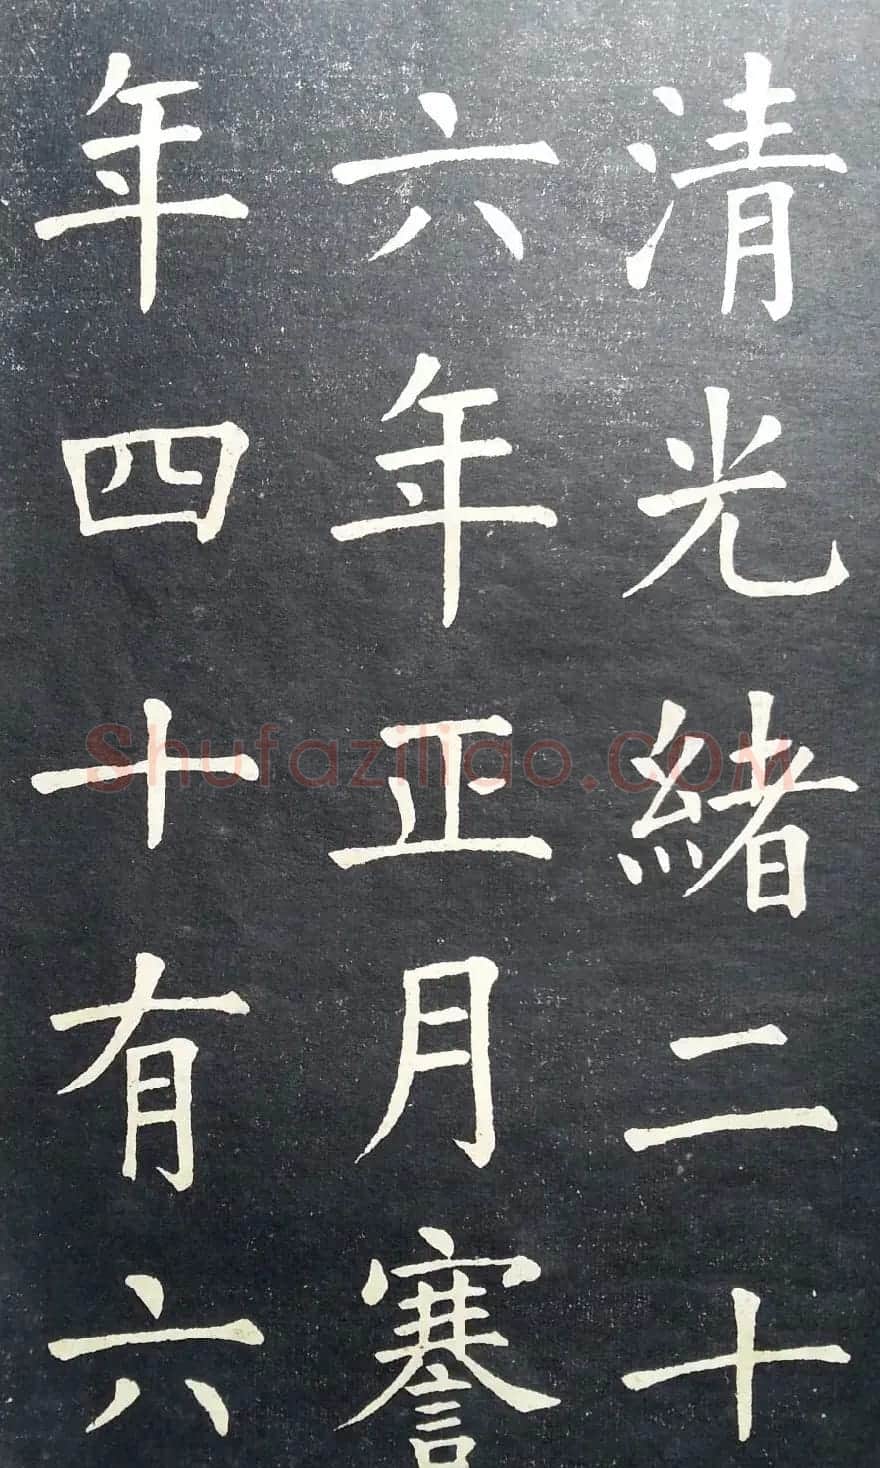 清光緒二十
六年正月謇
年四十有六
Shufaziliao.COM